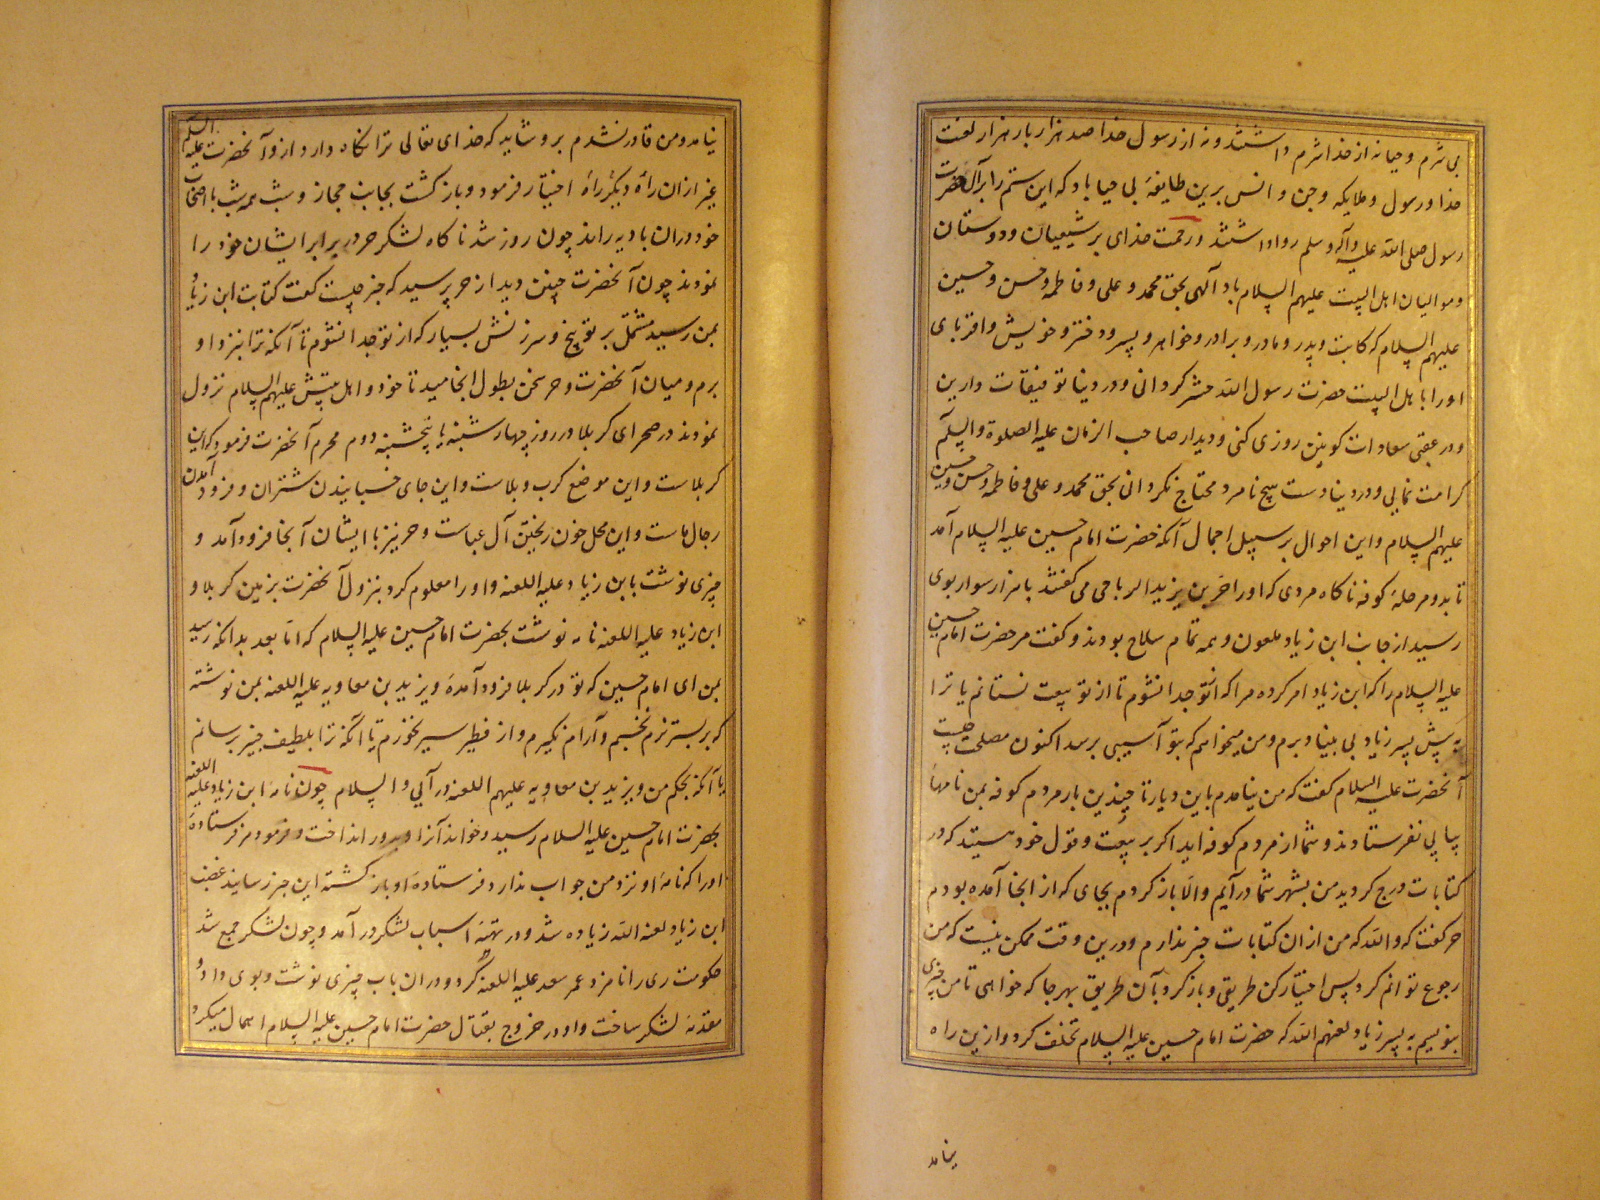 بی شرم و حیا نه از خدا شرم داشتند و نه از رسول خدا صد هزار بار هزار لعنت
خدا و رسول و ملایکه و جن و انس برین طایفهٔ بی حیا باد که این ستم را بر آل حضرت
رسول صلی الله علیه و آله و سلم روا داشتند و رحمت خدای بر شیعیان و دوستان
و موالیان اهل البیت علیهم السلام باد آلهی بحق محمد و علی و فاطمه و حسن و حسین
علیهم السلام که کاتبت و پدر و مادر و برادر و خواهر و پسر و دختر و خویش و اقربای
او را با اهل البیت حضرت رسول الله حشر کردانی و در دینا توفیقات دارین
و در عقبی سعادات کونین روزی کنی و دیدار صاحب الزمان علیه الصلوة و السلم
کرامت نمایی و در دینا دست هیچ نامرد محتاج نکردانی بحق محمد و علی و فاطمه و حسن و حسین
علیهم السلام و این احوال بر سبیل اجمال آنکه حضرت امام حسین علیه السلام آمد
تا بدو مرحلهٔ کوفه ناکاه مردی که او را حر بن یزید الریاحی می کفتند با هزار سوار بوی
رسید از جانب ابن زیاد ملعون و همه تمام سلاح بودند و کفت مر حضرت امام حسین
علیه السلام را که ابن زیاد امر کرده مرا که از تو جدا نشوم تا از تو بیعت نستانم یا ترا
به پیش پسر زیاد بی بنیاد برم و من میخواهم که بتو آسیبی برسد اکنون مصلحت چیست
آنحضرت علیه السلام کفت که من نیامدم باین دیار تا چندین بار مردم کوفه بمن نامها
پیاپی نفرستادند و شما از مردم کوفه اید اکر بر بیعت و قول خود هستید که در
کتابات درج کردید من بشهر شما درآیم و الا باز کردم بجای که از انجا آمده بودم
حر کفت که والله که من ازان کتابات خبر ندارم و درین وقت ممکن نیست که من
رجوع توانم کرد پس اختیار کن طریقی و باز کرد بآن طریق بهر جا که خواهی تا من چیزی
بنویسم به پسر زیاد لعنهم الله که حضرت امام حسین علیه السلام تخلف کرد و ازین راه
نیامد
نیامد و من قادر نشدم برو شاید که خدای تعالی ترا نکاه دارد ازو آنحضرت علیه السلم
غیر ازان راه دیکر راه اختیار فرمود و باز کشت بجانب حجاز و شب همه شب با اصحاب
خود دران بادیه راند چون روز شد ناکاه لشکر حر در برابر ایشان خود را
نمودند چون آنحضرت چنین دید از حر پرسید که خبر چیست کفت کتابت ابن زیاد
بمن رسید مشتمل بر توبیخ و سرزنش بسیار که از تو جدا نشوم تا آنکه ترا بنزد او
برم و میان آنحضرت و حر سخن بطول انجامید تا خود و اهل بیتش علیهم السلام نزول
نمودند در صحرای کربلا در روز چهارشنبه یا پنجشنبه دوم محرم آنحضرت فرمود که این
کربلاست و این موضع کرب و بلاست و این جای خسبانیدن شتران و فرود آمدن
رجال ماست و این محل خون ریختن آل عباست و حر نیز با ایشان آنجا فرود آمد و
چیزی نوشت بابن زیاد علیه اللعنه و او را معلوم کرد بنزول آنحضرت بزمین کربلا و
ابن زیاد علیه اللعنه نامه نوشت بحضرت امام حسین علیه السلام که اما بعد بدانکه رسید
بمن ای امام حسین که تو در کربلا فرود آمدهٔ و یزید بن معاویه علیه اللعنه بمن نوشته
که بر بستر نرم نخسبم و آرام نکیرم و از فطیر سیر نخورم تا آنکه ترا بلطیف خبیر رسانم
یا آنکه بحکم من و یزید بن معاویه علیهم اللعنه درآیی و السلام چون نامه ابن زیاد علیه اللعنه
بحضرت امام حسین علیه السلام رسید و خواند آنرا و بدور انداخت و فرمود مر فرستادهٔ
او را که نامهٔ او نزد من جواب ندارد فرستادهٔ او باز کشته این خبر رسانید غضب
ابن زیاد لعنه الله زیاده شد و در تهیهٔ اسباب لشکر درآمد و چون لشکر جمع شد
حکومت ری را نامزد عمر سعد علیه اللعنه کرد و دران باب چیزی نوشت و بوی داد و
مقدمهٔ لشکر ساخت و او در خروج بقتال حضرت امام حسین علیه السلام اهمال میکرد